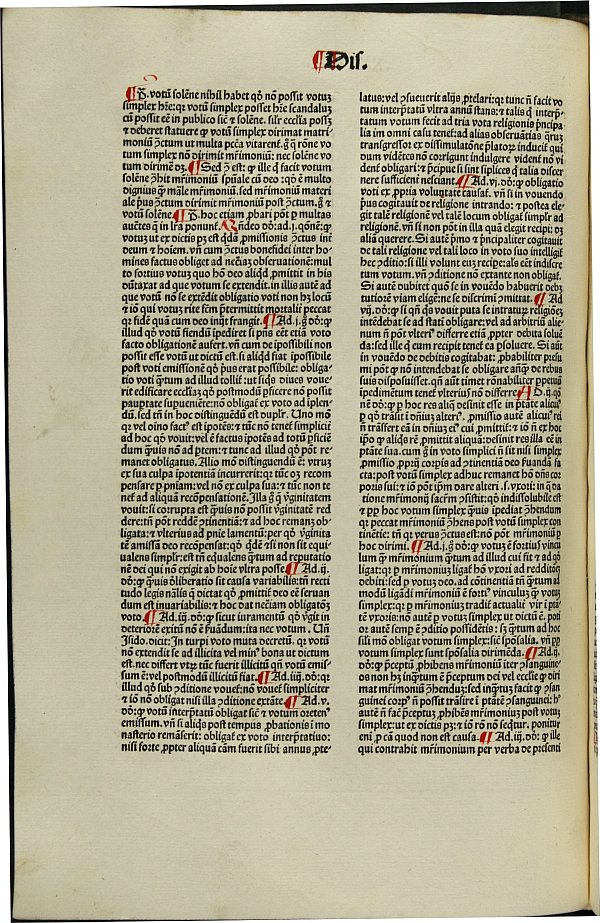 Dis.
votū solēne nihil habet qd nō possit votuʒ
simplex hře: qꝛ votū simplex posset hře scandaluʒ
cū possit eē in publico sic ⁊ solēne. silr eccłia posʒ
⁊ deberet statuere ꝙ votū simplex dirimat matri-
moniū ꝯtractum ut multa pctā vitarent. ḡ q̄ rōne vo
tum simplex nō dirimit mřimoniū: nec solēne vo
tum dirimere dʒ. Sed ꝯ est: qꝛ ille q̄ facit votum
solēne ꝯhit mřimoniū spūale cū deo: qd ē multo
dignius ꝙ māle mřimoniū. sed mřimoniū materi
ale prius ꝯtractum dirimit mřimoniū post ꝯtractum. ḡ ⁊
votū solēne. hoc etiam probari pōt p multas
aučtes q̄ in lřa ponunt. Rñdeo dō: ad .j. qōnē: ꝙ
votuʒ ut ex dictis pʒ est qdā promissionis ꝯtractus int
deum ⁊ hoiem. vñ cum ꝯtractus bonefidei inter ho-
mines factus obliget ad necāʒ obseruationē: mul
to fortius votuʒ quo hō deo aliqd promittit in his
dūtaxat ad que votum se extendit. in illis autē ad
que votū nō se extēdit obligatio voti nō hʒ locū
⁊ iō qui votuʒ rite fēm p̄termittit mortalit̄ peccat
qꝛ fidē quā cum deo iniit frangit. Ad .j. ḡ dō: ꝙ
illud qd votū fiendū ipediret si p̄ns eēt etiā voto
facto obligationē aufert. vñ cum de ipossibili non
possit esse votū ut dictū est. si aliqd fiat ipossibile
post voti emissionē qd prius erat possibile: obliga-
tio voti q̄tum ad illud tollit̄: ut siqs diues voue-
rit edificare eccłiaʒ qd postmodū p̄ficere nō possit
paupertate supueniēte: nō obligat̄ ex voto ad iplen-
dū. sed tñ in hoc distinguēdū est dupłr. Uno mō
qꝛ vel oino factū est ipotēs: ⁊ tūc nō tenet̄ simplicit̄
ad hoc qd vouit: vel ē factus ipotēs ad totū p̄ficiē
dum q̄uis nō ad ptem: ⁊ tunc ad illud qd pōt re-
manet obligatus. Alio mō distinguēdū ē: vtruʒ
ex sua culpa ipotentiā incurrerit: qꝛ tūc oʒ recom
pensare p pniam: vel nō ex culpa sua: ⁊ tūc non te
net̄ ad aliquā recōpensationē. Illa ḡ q̄ vginitatem
vouit: si corrupta est q̄uis nō possit vginitatē red
dere: tñ pōt reddere ꝯtinentiā: ⁊ ad hoc remanʒ ob-
ligata: ⁊ vlterius ad pnie lamentū: per qd vginita
tē amissā deo recōpensat̄: qd qdē ⁊ si non sit equi-
ualens simplr: est tñ equalens q̄tum ad reputatio
nē dei qui nō exigit ab hoie vltra posse. Ad .ij.
dō: ꝙ q̄uis dliberatio sit causa variabilis: tñ recti
tudo legis nālis q̄ dictat qd promittit deo eē seruan
dum est inuariabilis: ⁊ hoc dat necāiam obligatōʒ
voto. Ad .iij. dō: ꝙ sicut iuramentū qd vgit in
deteriorē exitū nō ē suandum: ita nec votum. Uñ
Isido. dicit: In turpi voto muta decretū. qꝛ votū
nō extendit se ad illicita vel minus bona ut dictum
est. nec differt vtrum tūc fuerit illicitū qn̄ votū emis-
sum ē: vel postmodū illicitū fiat. Ad .iiij. dō: qꝛ
illud qd sub ꝯditione vouet̄: nō vouet̄ simpliciter
⁊ iō nō obligat nisi illa ꝯditione extāte. Ad .v.
dō: ꝙ votū interpretatū obligat sic ⁊ votum oretenus
emissum. vñ si aliqs post tempus probationis in mo
nasterio remāserit: obligat̄ ex voto interpretatiuo:
nisi forte propter aliquā cām fuerit sibi annus pro-
latus: vel ꝯsueuerit alijs protelari: qꝛ tunc nō facit vo
tum interpretatū vltra annū stans: ⁊ talis q̄ interp-
tatum votum fecit ad tria vota religionis p̄ncipa
lia im omni casu tenet̄: ad alias obseruātias q̄ruʒ
transgressor ex dissimulatōne p̄latorʒ inducit̄ qui
dum vidētes nō corrigunt indulgere vident̄ nō vi
dent̄ obligari: ⁊ p̄cipue si sint siplices q̄ talia discer
nere sufficient̄ nesciant. Ad .vj. dō: ꝙ obligatio
voti ex propria voluntate causat̄. vñ si in vouendo
prius cogitauit de religione intrando: ⁊ postea ele
git talē religionē vel talē locum obligat̄ simplr ad
religionē. vñ si non pōt in illa quā elegit recipi: dʒ
aliā querere. Si autē primo ⁊ p̄ncipaliter cogitauit
de tali religione vel tali loco in voto suo intelligit̄
hec ꝯditio: si illi volunt euʒ recipe: als eēt indiscre
tum votum. vñ ꝯditione nō extante non obligat̄.
Si autē dubitet quō se in vouēdo habuerit debʒ
tutiorē viam eligere: ne se discrimi ꝯmittat. Ad
vij. dō: ꝙ si qn̄ qs vouit puta se intraturʒ religiōeʒ
intēdebat se ad stati obligare: vel ad arbitriū alie-
num n̄ pōt vlterius differre etiā propter debita solue
da: sed ille q̄ eum recipit tenet̄ ea psoluere. Si aūt
in vouēdo de debitis cogitabat: probabiliter presu
mi pōt ꝙ nō intendebat se obligare anq̄ de rebus
suis disposuisset. qn̄ aūt timet rōnabiliter perpetuū
ipedimētum tenet̄ vlterius nō differre. Ad .ij. qō
nē dō: ꝙ per hoc res aliqua desinit esse in ptāte alicuiʒ
p qd trāsit ī dn̄iuʒ alterius. promissio autē alicuius rei
n̄ trāsfert eā in dn̄iuʒ eius cui promittit̄: ⁊ iō n̄ ex hoc
ipo ꝙ alqs rē promittit aliquā: desinit res illa eē in
ptāte sua. cum ḡ in voto simplici n̄ sit nisi simplex
promissio, proprij corpis ad ꝯtinentiā deo seruandā fa-
cta: post votū simplex adhuc remanet hō dn̄s cor
poris sui: ⁊ iō pōt ipm dare alteri .s. vxori: in q̄ da
tione mřimonij sacr̄m ꝯsistit: qd indissolubile est
⁊ propter hoc votum simplex q̄uis ipediat ꝯhendum
qꝛ peccat mřimoniū ꝯhens post votū simplex con
tinētie: tñ qꝛ verus ꝯtractus est: nō pōt mřimoniū p
hoc dirimi. Ad .j. ḡ dō: ꝙ votuʒ ē fortius vincu
lum ꝙ mřimoniū q̄ntum ad illud cui fit ⁊ ad qd
ligat: qꝛ p mřimoniuʒ ligat̄ hō vxori ad redditōʒ
debiti: sed p votuʒ deo. ad cōtinentiā tñ q̄ntum ad
modū ligādi mřimoniū ē fortius vinculuʒ ꝙ votuʒ
simplex: qꝛ p mřimoniū tradit̄ actualit̄ vir ī ptā-
tē vxoris: nō autē p votuʒ simplex ut dictū ē. poti
or autē semp ē ꝯditio possidētis: sʒ q̄ntum ad hoc
sili mō obligat votum simplex sic spōsalia. vñ propter
votum simplex sunt spōsalia dirimēda. Ad .ij.
dō: ꝙ p̄ceptū prohibens mřimoniū iter ꝯsanguine
os non hʒ inq̄ntum ē p̄ceptum dei vel eccłie ꝙ diri
mat mřimoniū ꝯhenduʒ: sed inq̄tuʒ facit ꝙ ꝯsan
guinei corpus n̄ possit trāsire ī ptātē ꝯsanguinei: hʒ
autē n̄ facit p̄ceptuʒ prohibēs mřimoniū post votuʒ
simplex: ut ex dictis pʒ: ⁊ iō rō nō seqtur. ponitur
eni p cā quod non est causa. Ad .iij. dō: ꝙ ille
qui contrahit mřimonium per verba de presenti